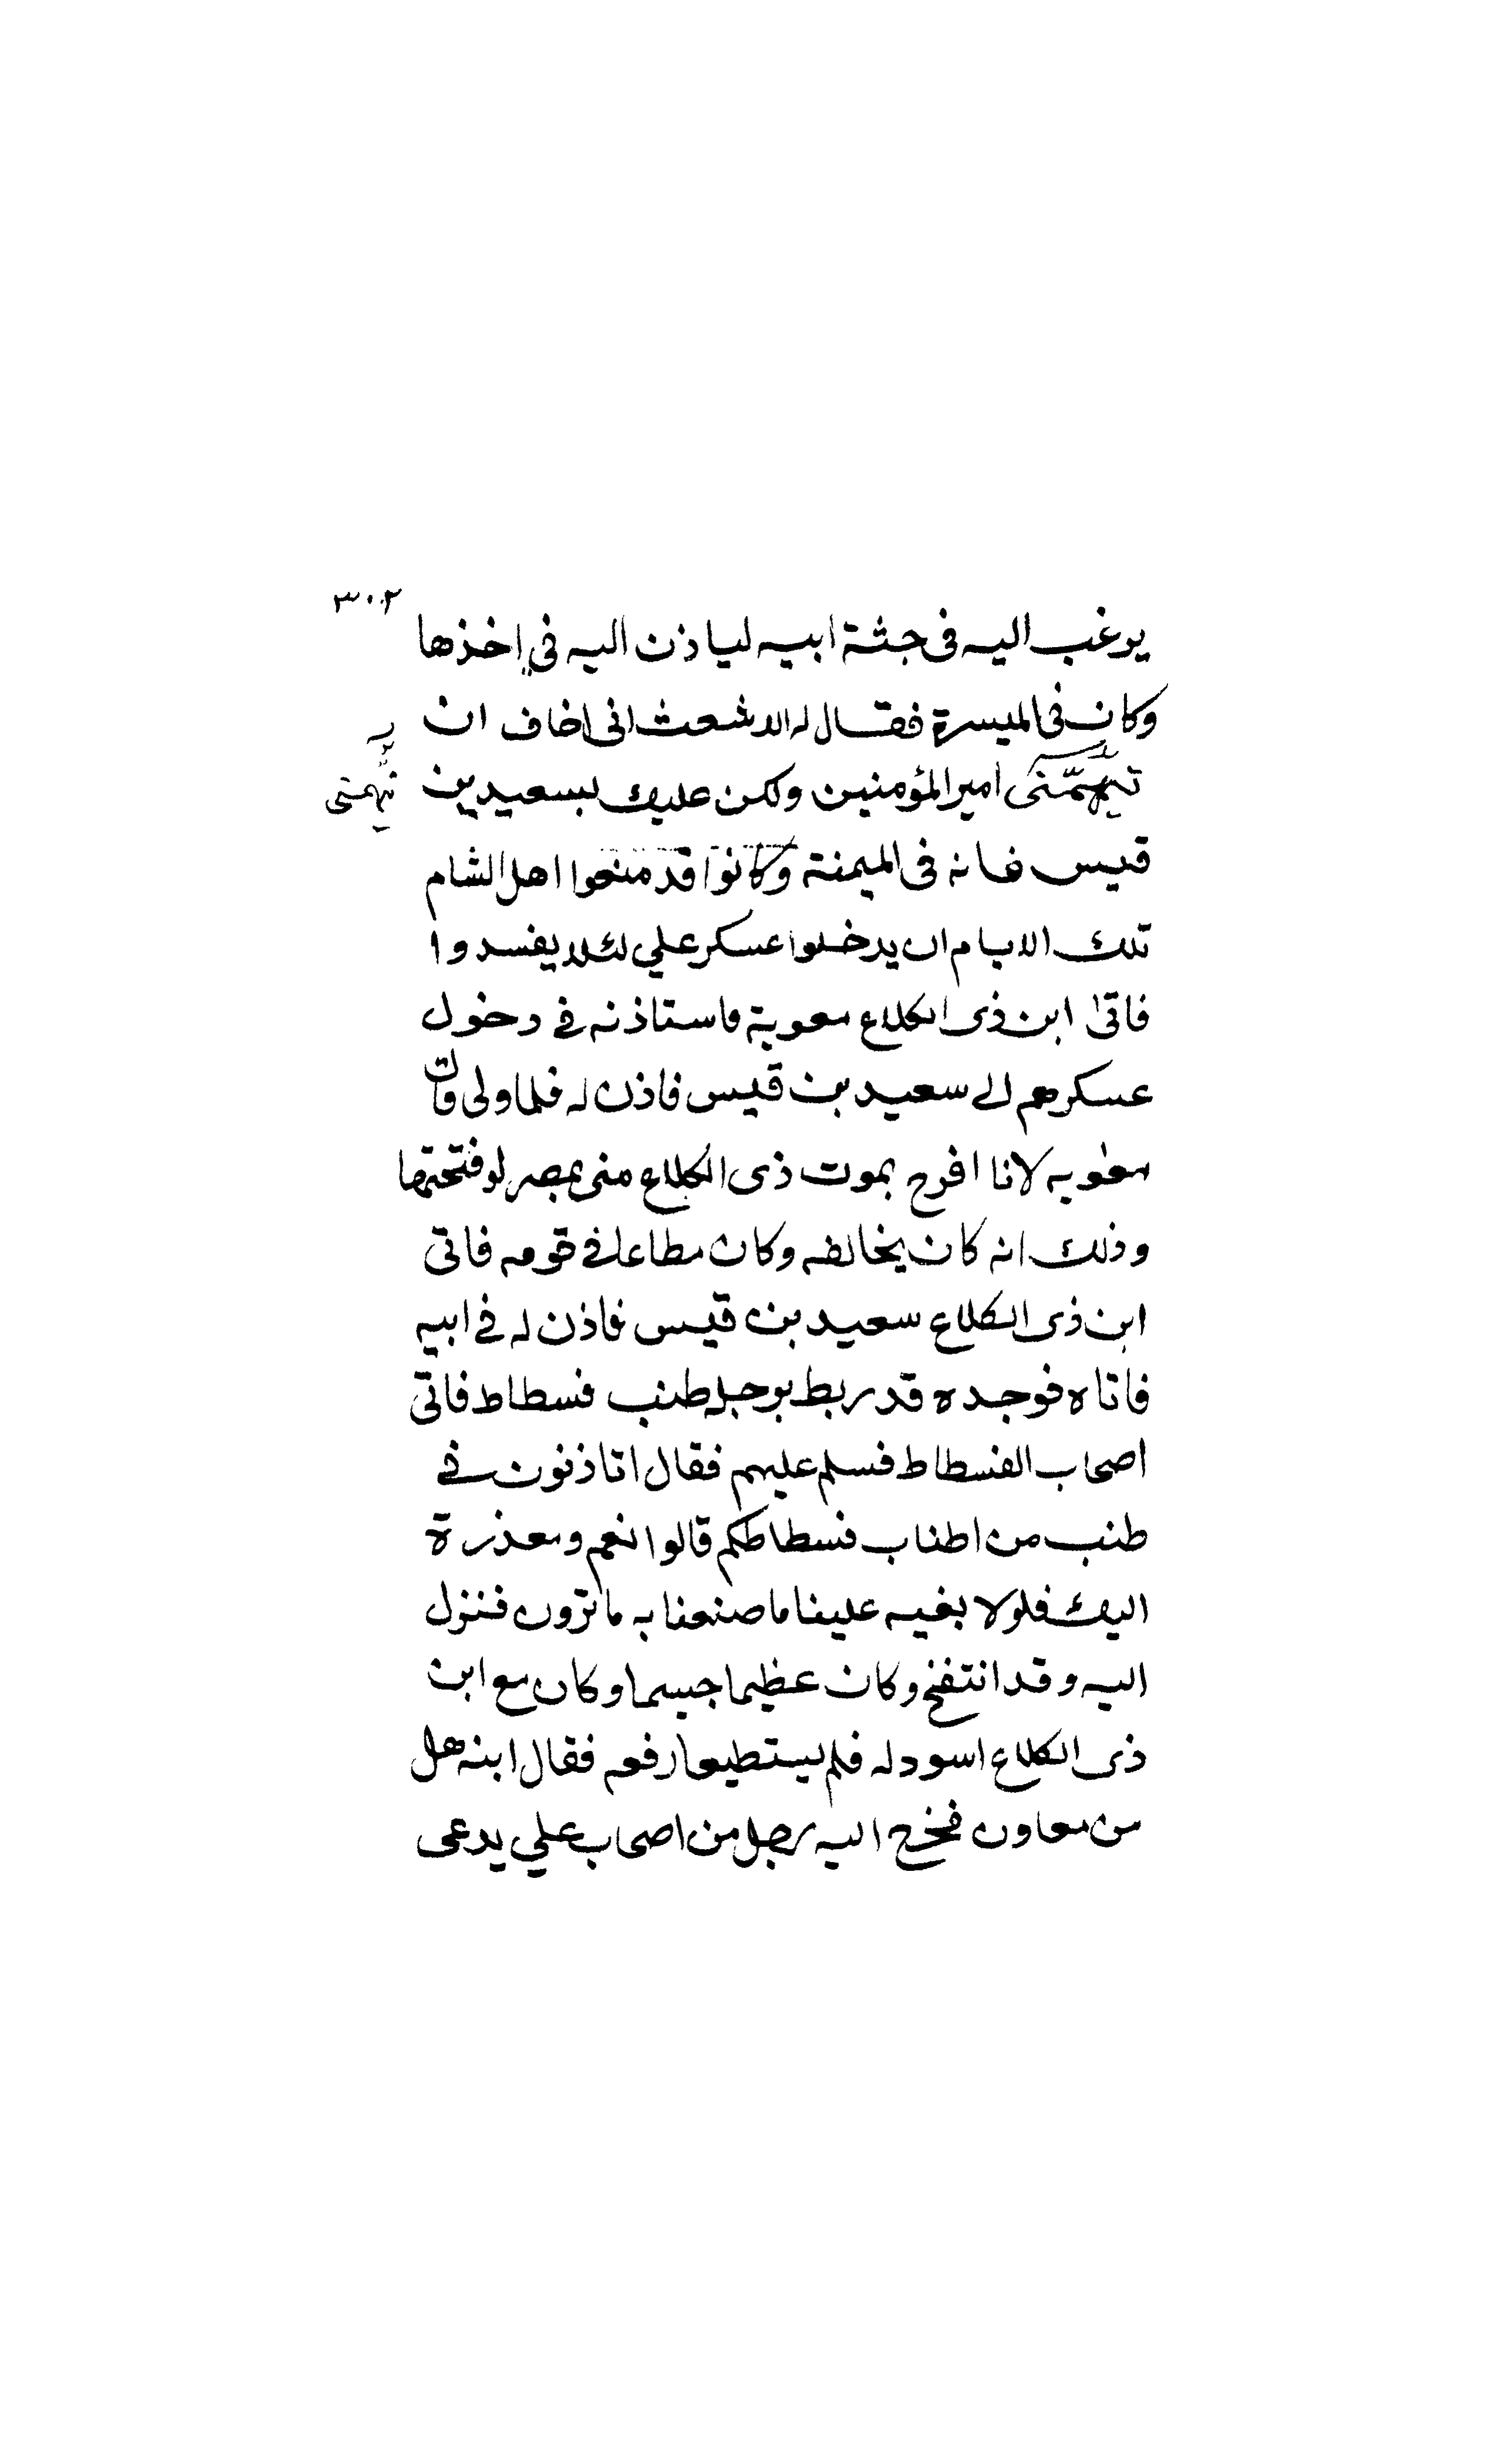 ٣٠٢
يرغب اليه فى جثة ابيه لياذن اليه فى اخذها
وكان فى الميسرة فقال له الاشعث انى اخاف ان
يتهمنى امير المؤمنين ولكن عليك بسعيد بن
يتهمنى
قيس فانه فى الميمنة وكانوا قد منعوا اهل الشام
تلك الايام ان يدخلوا عسكر علي لئلا يفسدوا
فاتى ابن ذى الكلاع معوية فاستاذنه في دخول
عسكرهم الى سعيد بن قيس فاذن له فلما ولى قال
معويه لانا افرح بموت ذى الكلاع منى بمصر لو فتحتها
وذلك انه كان يخالفه وكان مطاعا في قومه فاتى
ابن ذى الكلاع سعيد بن قيس فاذن له في ابيه
فاتاه فوجده قد ربط برجله طنب فسطاط فاتى
اصحاب الفسطاط فسلم عليهم فقال اتاذنون في
طنب من اطناب فسطاطكم قالوا نعم ومعذرة
اليك فلولا بغيه علينا ما صنعنا به ما ترون فنزل
اليه وقد انتفخ وكان عظيما جسيما وكان مع ابن
ذى الكلاع اسود له فلم يستطيعا رفعه فقال ابنه هل
من معاون فخرج اليه رجل من اصحاب علي يدعى